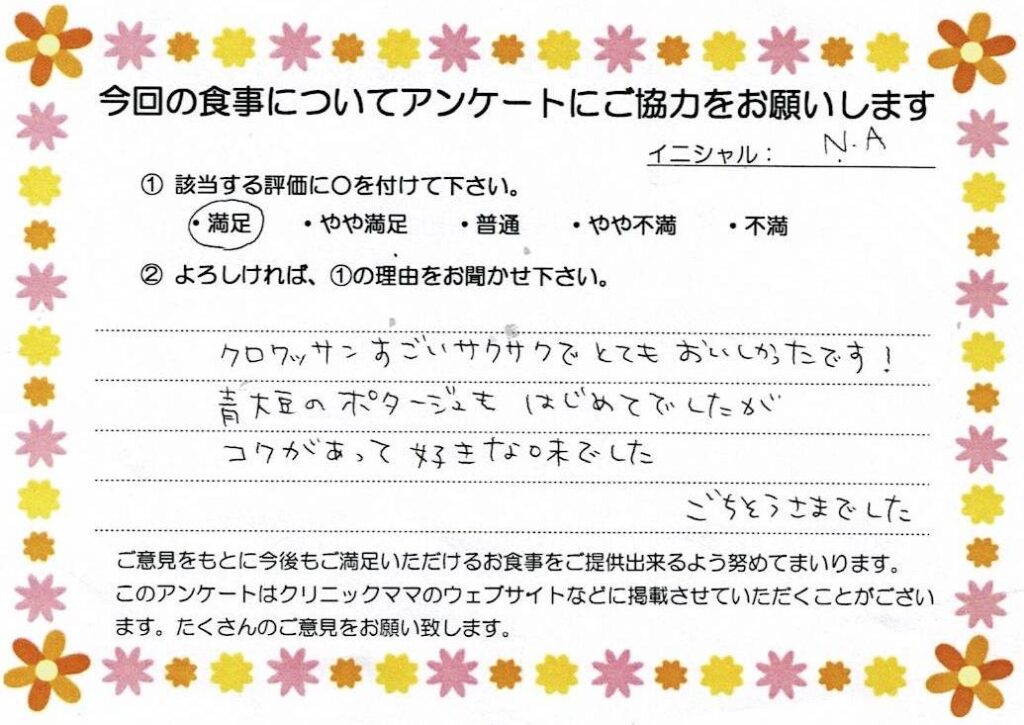 今回の食事についてアンケートにご協力をお願いします
イニシャル： N.A
① 該当する評価に〇を付けて下さい。
・満足 ・やや満足 ・普通 ・やや不満 ・不満
② よろしければ、①の理由をお聞かせ下さい。
クロワッサンすごいサクサクでとてもおいしかったです！
青大豆のポタージュもはじめてでしたが
コクがあって好きな味でした
ごちそうさまでした
ご意見をもとに今後もご満足いただけるお食事をご提供出来るよう努めてまいります。
このアンケートはクリニックママのウェブサイトなどに掲載させていただくことがござい
ます。たくさんのご意見をお願い致します。